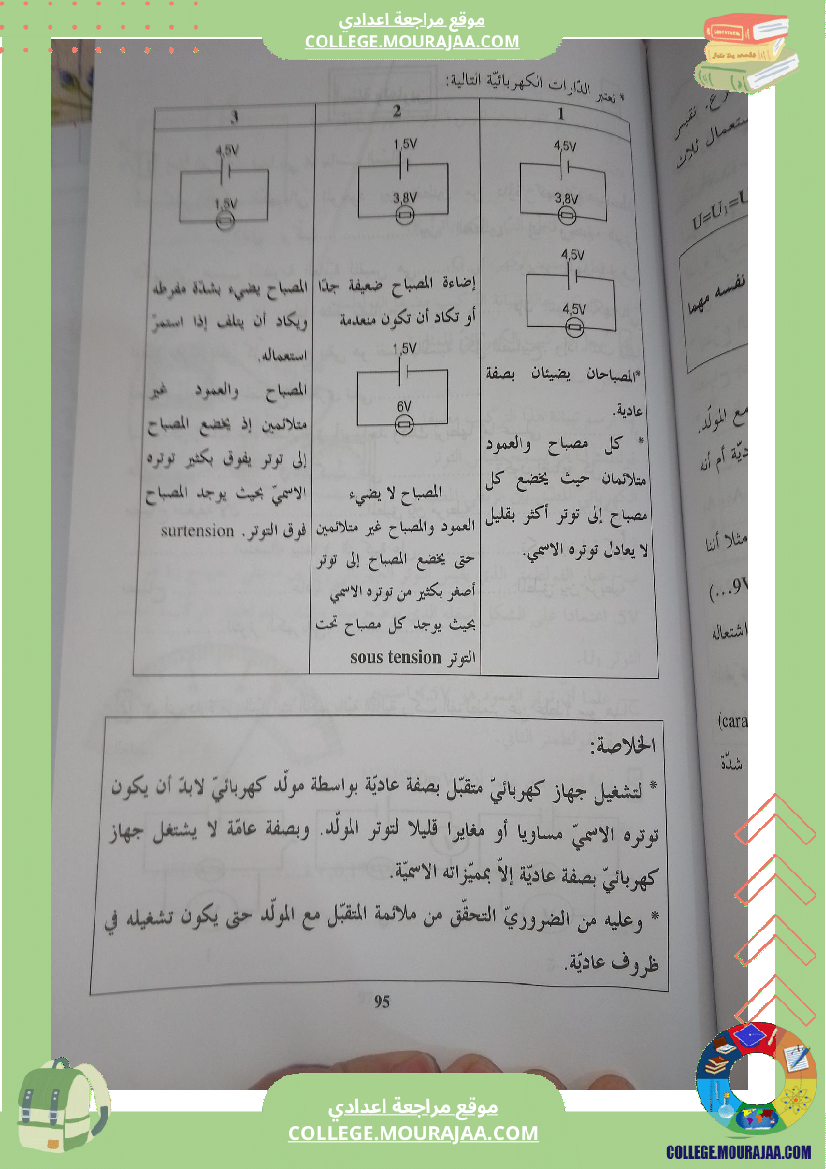 موقع مراجعة اعدادي
COLLEGE.MOURAJAA.COM
* نعتبر الدّارات الكهربائيّة التالية:
1
4,5V
3,8V
4,5V
4,5V
*المصباحان يضيئان بصفة
عادية.
* كل مصباح والعمود
متلائمان حيث يخضع كل
مصباح إلى توتر أكثر بقليل
لا يعادل توتره الاسمي.
2
1,5V
3,8V
إضاءة المصباح ضعيفة جدّا
أو تكاد أن تكون منعدمة
1,5V
6V
المصباح لا يضيء
العمود والمصباح غير متلائمين
حتى يخضع المصباح إلى توتر
أصغر بكثير من توتره الاسمي
بحيث يوجد كل مصباح تحت
التوتر sous tension
3
4,5V
1,5V
المصباح يضيء بشدّة مفرطة
ويكاد أن يتلف إذا استمرّ
استعماله.
المصباح والعمود غير
متلائمين إذ يخضع المصباح
إلى توتر يفوق بكثير توتره
الاسميّ بحيث يوجد المصباح
فوق التوتر. surtension
الخلاصة:
* لتشغيل جهاز كهربائيّ متقبّل بصفة عاديّة بواسطة مولّد كهربائيّ لابدّ أن يكون
توتره الاسميّ مساويا أو مغايرا قليلا لتوتر المولّد. وبصفة عامّة لا يشتغل جهاز
كهربائيّ بصفة عاديّة إلاّ بمميّزاته الاسميّة.
* وعليه من الضروريّ التحقّق من ملائمة المتقبّل مع المولّد حتى يكون تشغيله في
ظروف عاديّة.
95
رع. نقيس
ستعمال ثلاث
U=U₁=U
نفسه مهما
مع المولّد.
ديّة أم أنه
مثلا أننا
(...9V
اشتعاله
(cara
شدّة
موقع مراجعة اعدادي
COLLEGE.MOURAJAA.COM
COLLEGE.MOURAJAA.COM